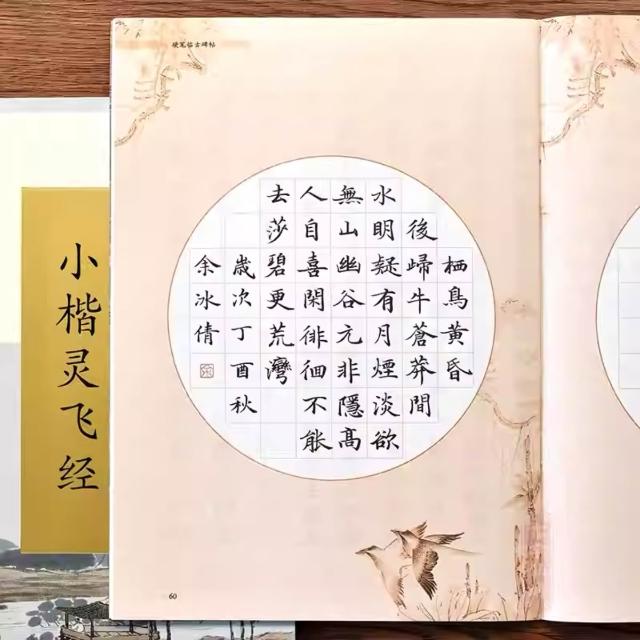 硬笔临古碑帖
栖鳥黄昏
後歸牛蒼莽間
水明疑有月煙淡欲
無山幽谷元非隱高
人自喜閑徘徊不能
去莎碧更荒灣
歲次丁酉秋
余冰倩
60
小楷灵飞经